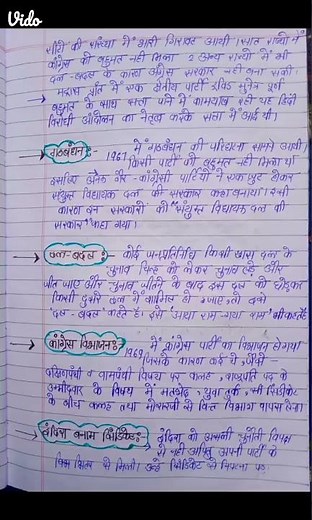 Vido
सीटों की संख्या में भारी गिरावट आयी। सात राज्यों में
कांग्रेस को बहुमत नहीं मिला 2 अन्य राज्यों में भी
दल-बदल के कारण कांग्रेस सरकार नहीं बना सकी।
मद्रास प्रांत में एक क्षेत्रीय पार्टी द्रविड़ मुनेत्र पूर्ण
बहुमत के साथ सत्ता पाने में कामयाब रही यह हिंदी
विरोधी आंदोलन का नेतृत्व करके सत्ता में आई थी।
गठबंधन:- 1967 में गठबंधन की परिघटना सामने आयी।
किसी पार्टी को बहुमत नहीं मिला था
इसलिए अनेक गैर-कांग्रेसी पार्टियों ने एकजुट होकर
संयुक्त विधायक दल की सरकार बनाया। इसी
कारण इन सरकारों को "संयुक्त विधायक दल की
सरकार" कहा गया।
दल-बदल:- कोई जनप्रतिनिधि किसी खास दल के
चुनाव चिन्ह को लेकर चुनाव लड़े और
जीत जाए और चुनाव जीतने के बाद इस दल को छोड़कर
किसी दूसरे दल में शामिल हो जाए तो इसे
'दल-बदल' कहते हैं। इसे 'आया राम-गया राम' भी कहते हैं
कांग्रेस विभाजन:- में कांग्रेस पार्टी का विभाजन हो गया
1969 जिसके कारण कई थे, जैसे-
दक्षिणपंथी व वामपंथी विषय पर कलह, राष्ट्रपति पद के
उम्मीदवार के विषय में मतभेद, युवा तुर्क, सिंडिकेट
के बीच कलह तथा मोरारजी से वित्त विभाग वापस लेना
इंदिरा बनाम सिंडिकेट:- इंदिरा को असली चुनौती विपक्ष
से नहीं अपितु अपनी पार्टी के
मिली। उन्हें सिंडिकेट से निपटना पड़ा